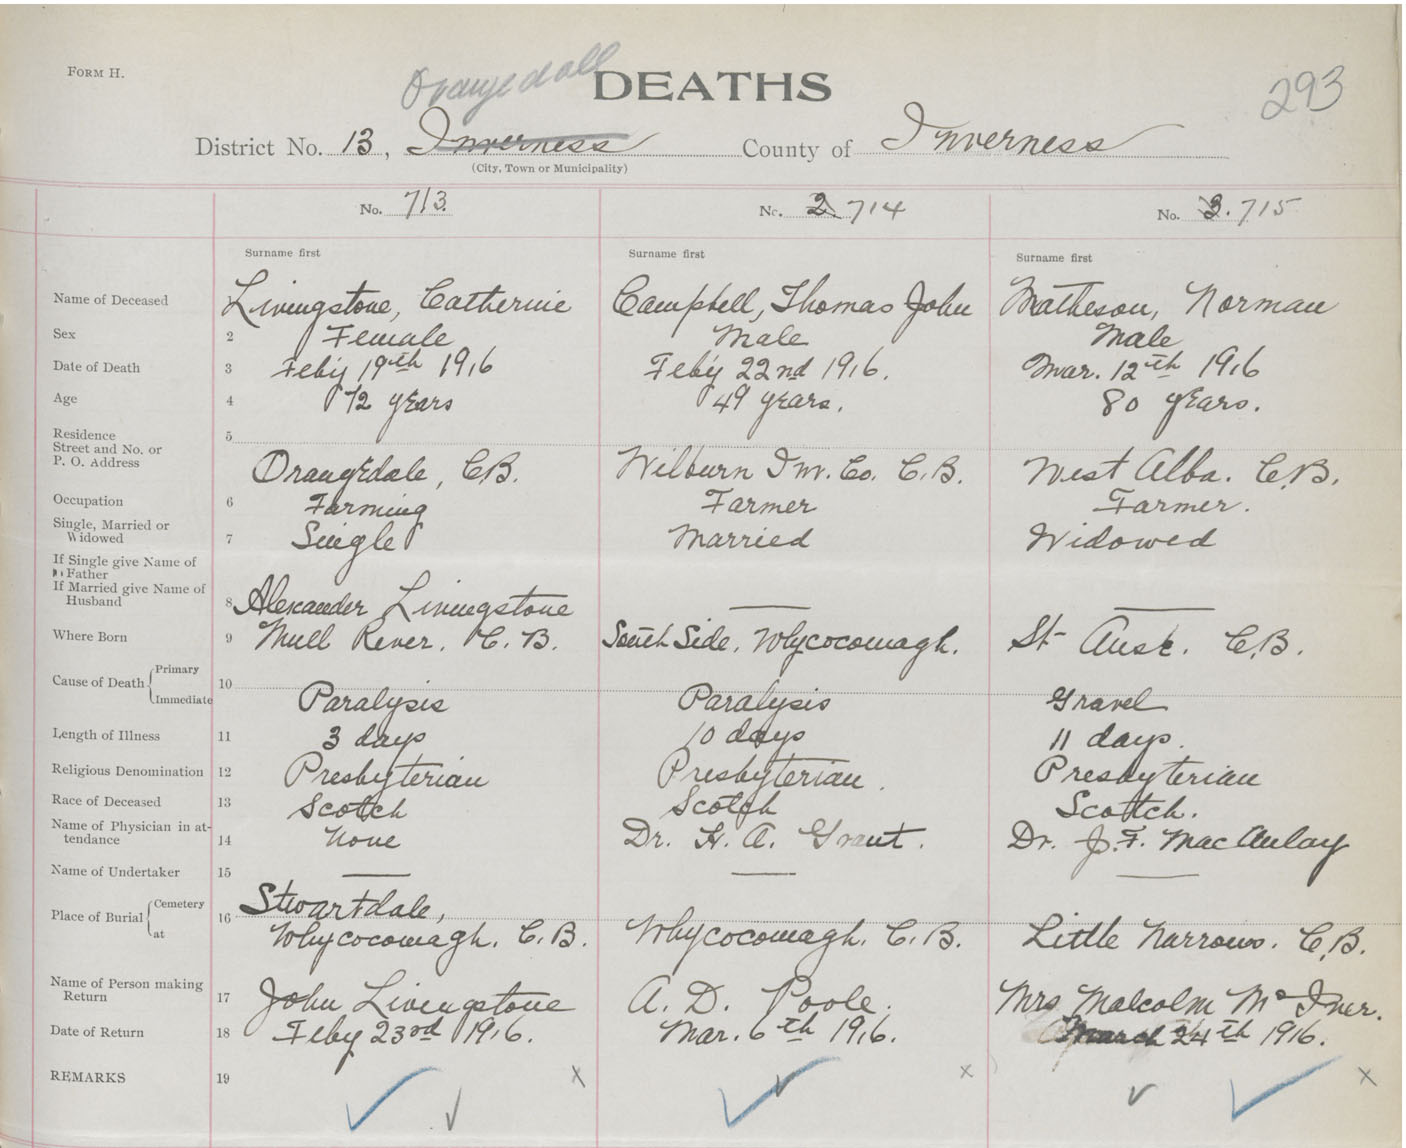 FORM H.
Orangedall
DEATHS
293
District No. 13, Inverness County of Inverness
(City, Town or Municipality)
No. 713. No. 2. 714 No. 3. 715
Surname first Surname first Surname first
Name of Deceased Livingstone, Catherine Campbell, Thomas John Matheson, Norman
Sex 2 Female Male Male
Date of Death 3 Feby 19th 1916 Feby 22nd 1916. Mar. 12th 1916
Age 4 72 years 49 years. 80 years.
Residence 5
Street and No. or
P. O. Address Orangedale, C.B. Wilburn Inv. Co. C.B. West Alba. C.B.
Occupation 6 Farming Farmer Farmer.
Single, Married or
Widowed 7 Single Married Widowed
If Single give Name of
Father
If Married give Name of
Husband 8 Alexander Livingstone — —
Where Born 9 Mull River. C. B. South Side, Whycocomagh. St C.B.
Cause of Death Primary
Immediate 10 Paralysis Paralysis Gravel
Length of Illness 11 3 days 10 days 11 days.
Religious Denomination 12 Presbyterian Presbyterian. Presbyterian
Race of Deceased 13 Scotch Scotch Scotch.
Name of Physician in at-
tendance 14 None Dr. H. A. Grant. Dr. J. F. MacAulay
Name of Undertaker 15 — — —
Place of Burial Cemetery 16 Stwartdale,
at Whycocomagh. C.B. Whycocomagh. C.B. Little Narrows. C.B.
Name of Person making
Return 17 John Livingstone A. D. Poole. Mrs Malcolm Mc Iver.
Date of Return 18 Feby 23rd 1916. Mar. 6th 1916. March 24th 1916.
REMARKS 19 x x x